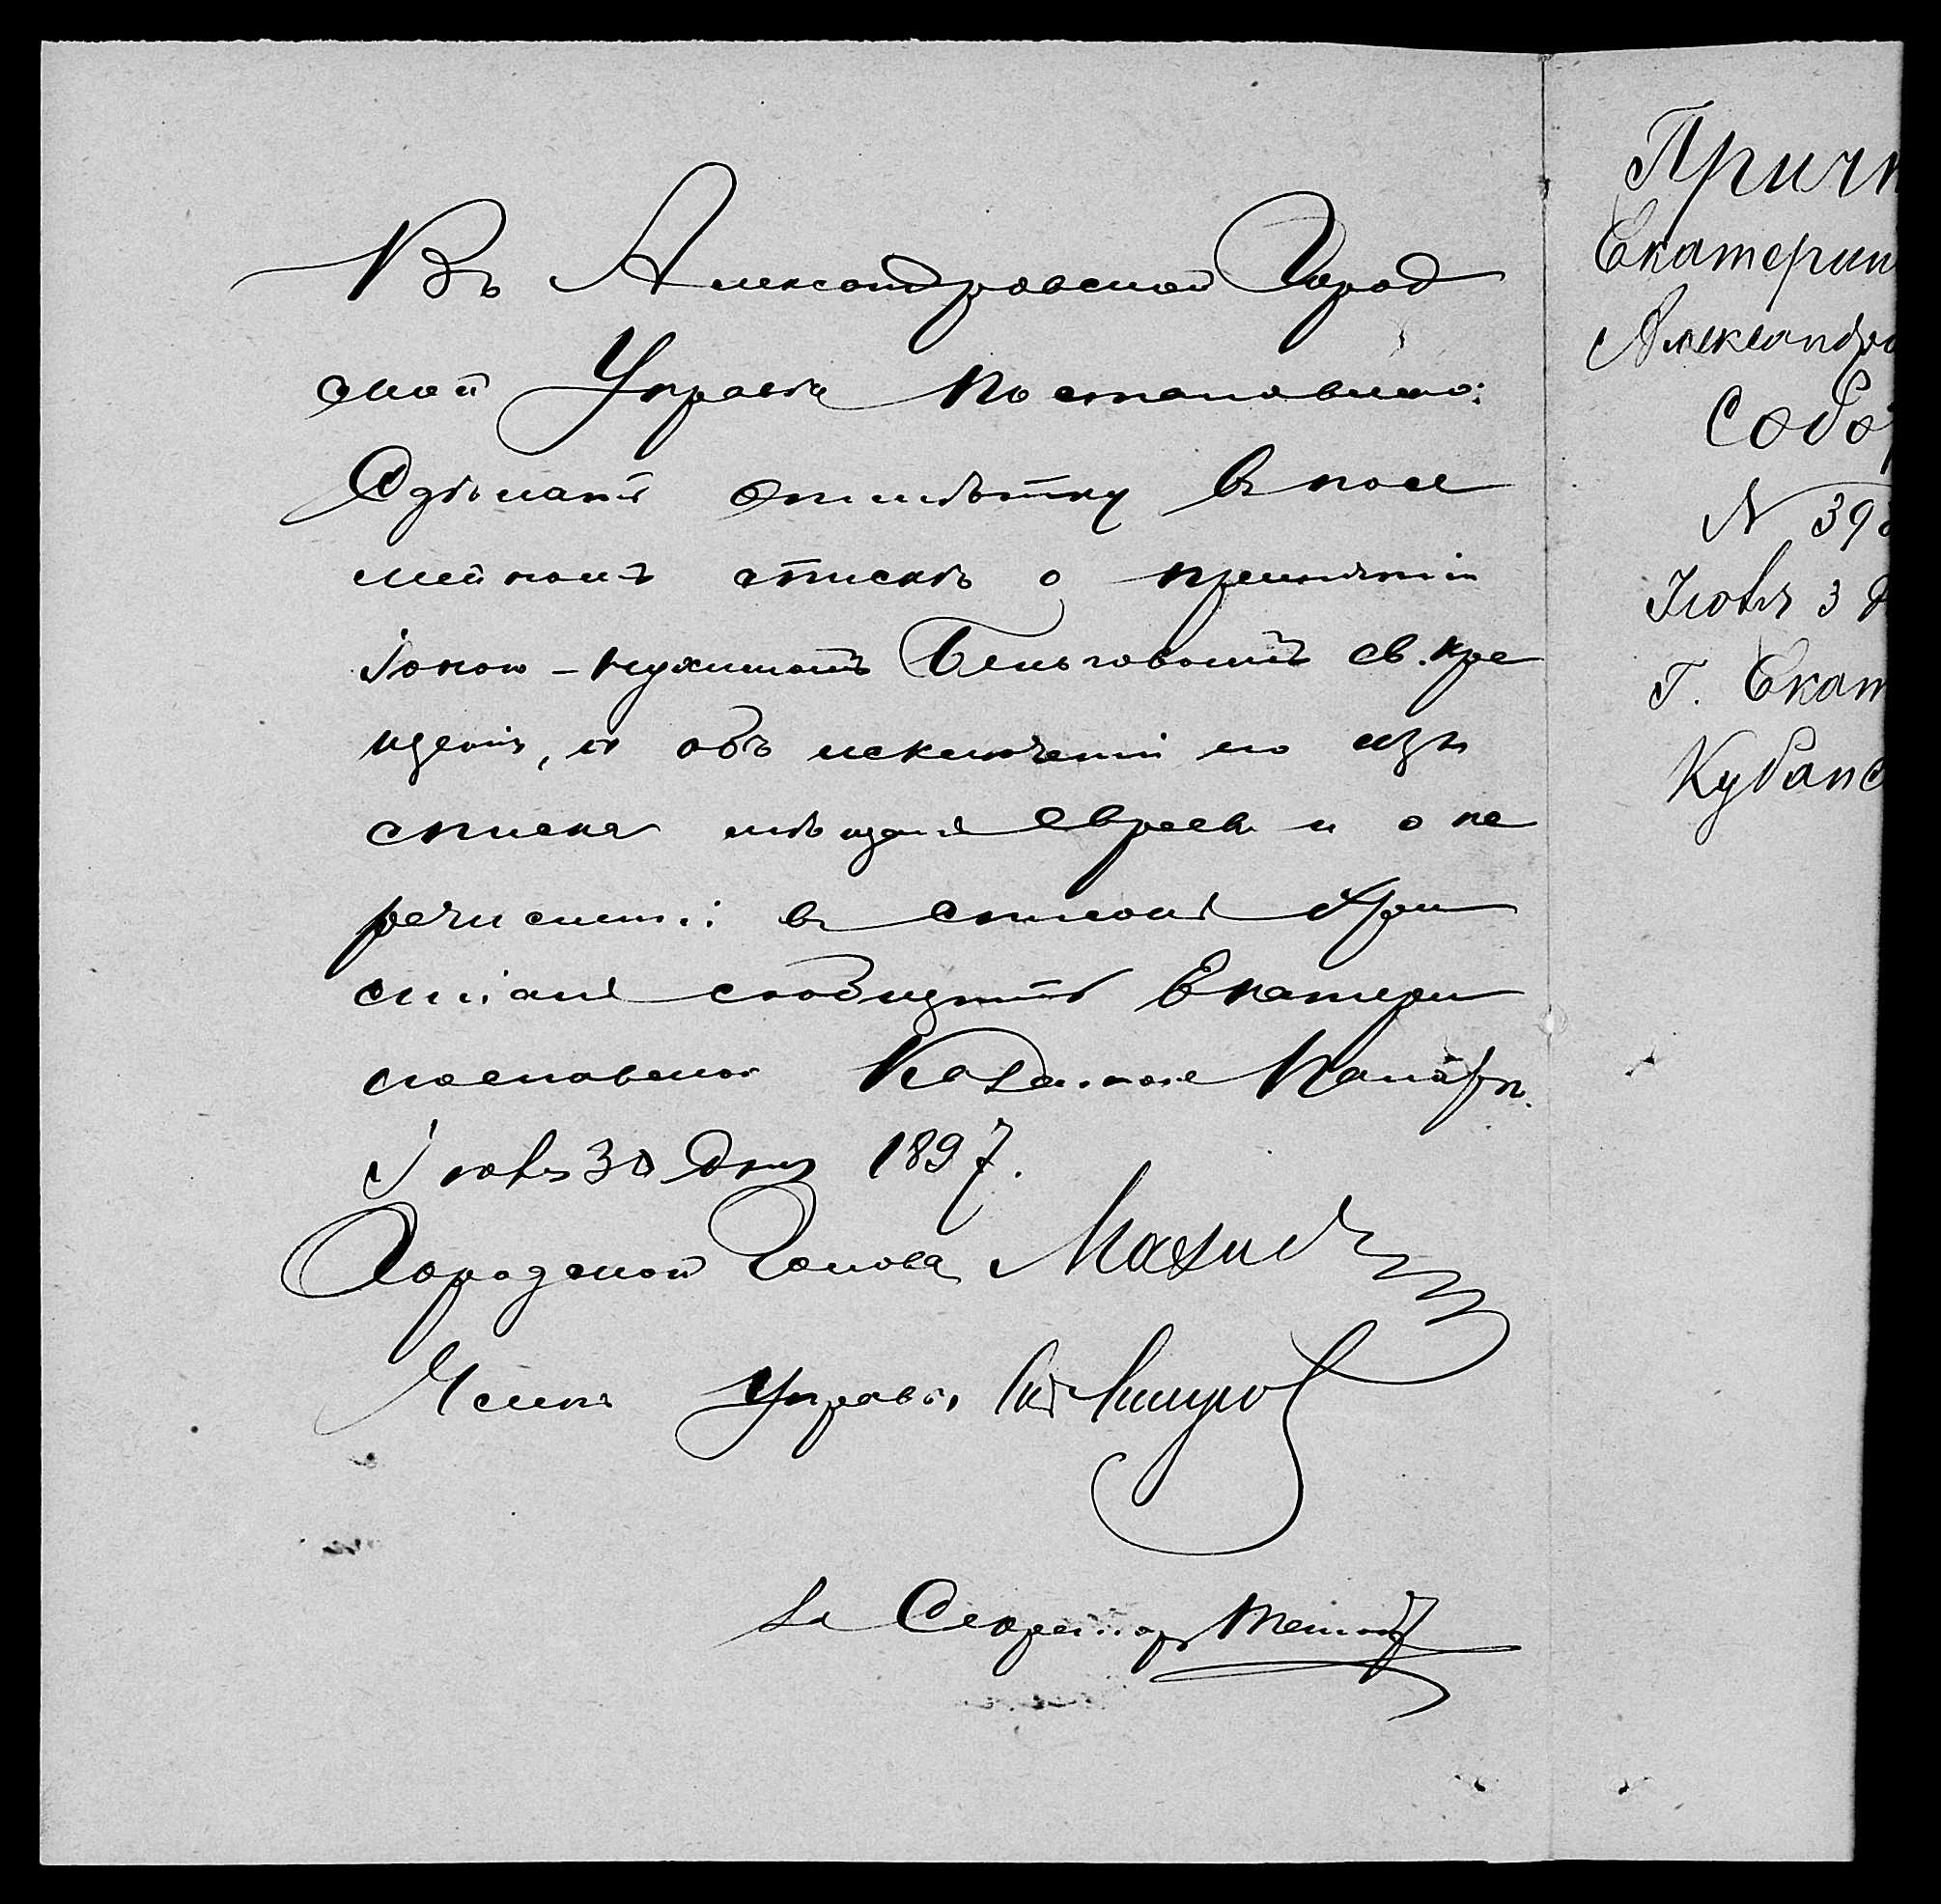 Въ Александровской Город
ской Управѣ постановлено:
Сдѣлать отмѣтку въ посе
мейномъ спискѣ о принятіи
Іоною-Нухимомъ св. кре
щенія, и объ исключеніи его изъ
списка мѣщанъ евреевъ и о пе
речисленіи въ списокъ хри
стіанъ сообщить Екатери
нославской Казенной Палатѣ.
Іюля 30 дня 1897.
Городской Голова
Членъ Управы
За Секретаря
Причт
Екатерин
Александро
Собор
N 39
Іюля 3
г. Екат
Кубанс